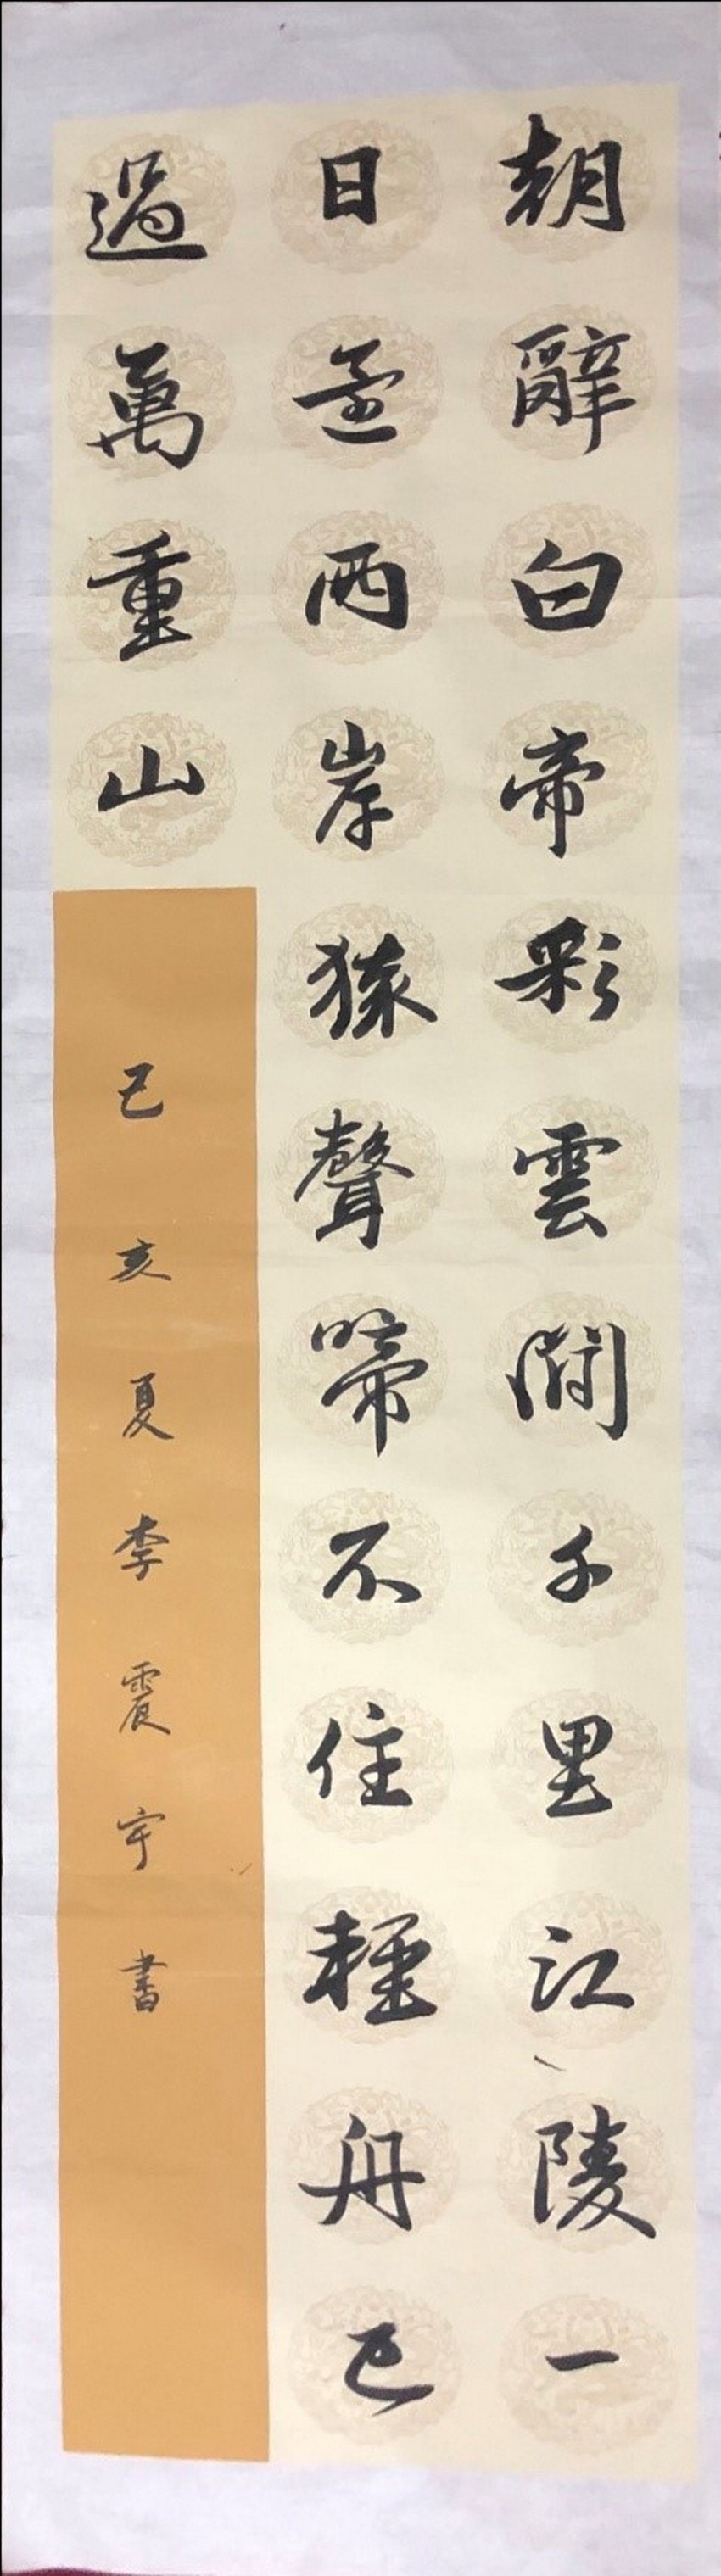 朝辭白帝彩雲間千里江陵一
日還兩岸猿聲啼不住輕舟已
過萬重山
己亥夏李震宇書